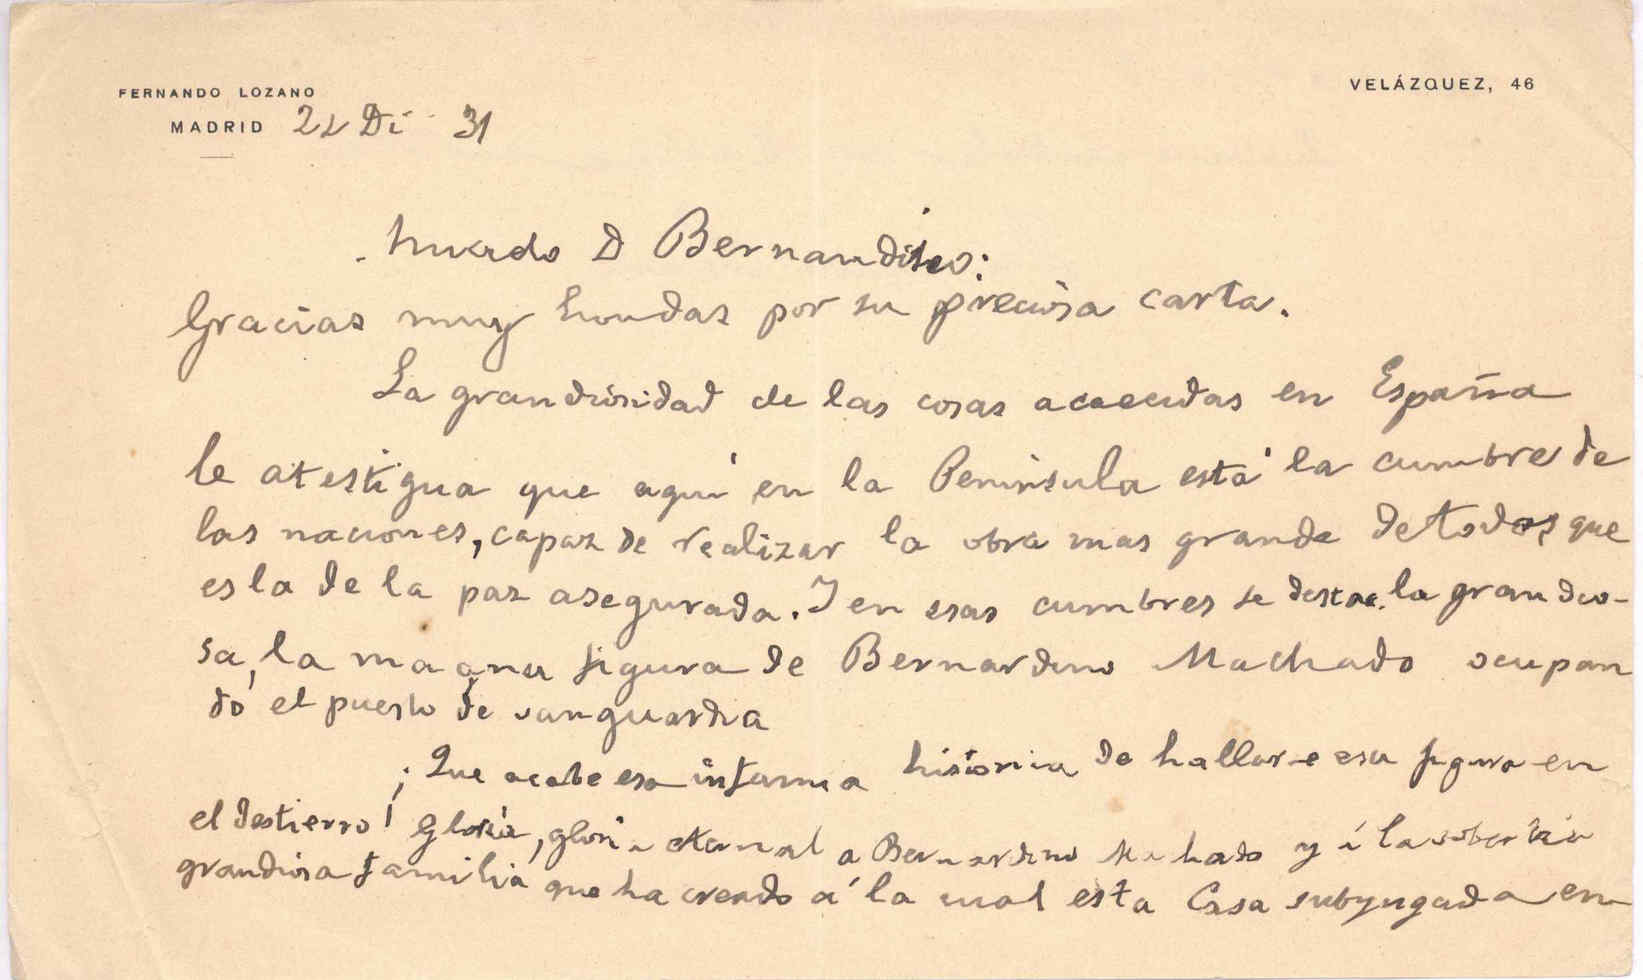 FERNANDO LOZANO
VELÁZQUEZ, 46
MADRID 22 Di 31
D Bernardino:
Gracias muy hondas por su preciosa carta.
La grandiosidad de las cosas acaecidas en España
le atestigua que aquí en la Peninsula está la cumbre de
las naciones, capaz de realizar la obra mas grande de todas, que
es la de la paz asegurada. Y en esas cumbres se destaca la grandio-
sa, la magna figura de Bernardino Machado ocupan
dó el puesto de vanguardia
¡Que acabe esa infamia de hallarse esa figura en
el destierro! Gloria, gloria eternal a Bernardino Machado y á la
grandiosa familia que ha creado á la cual esta Casa subyugada en